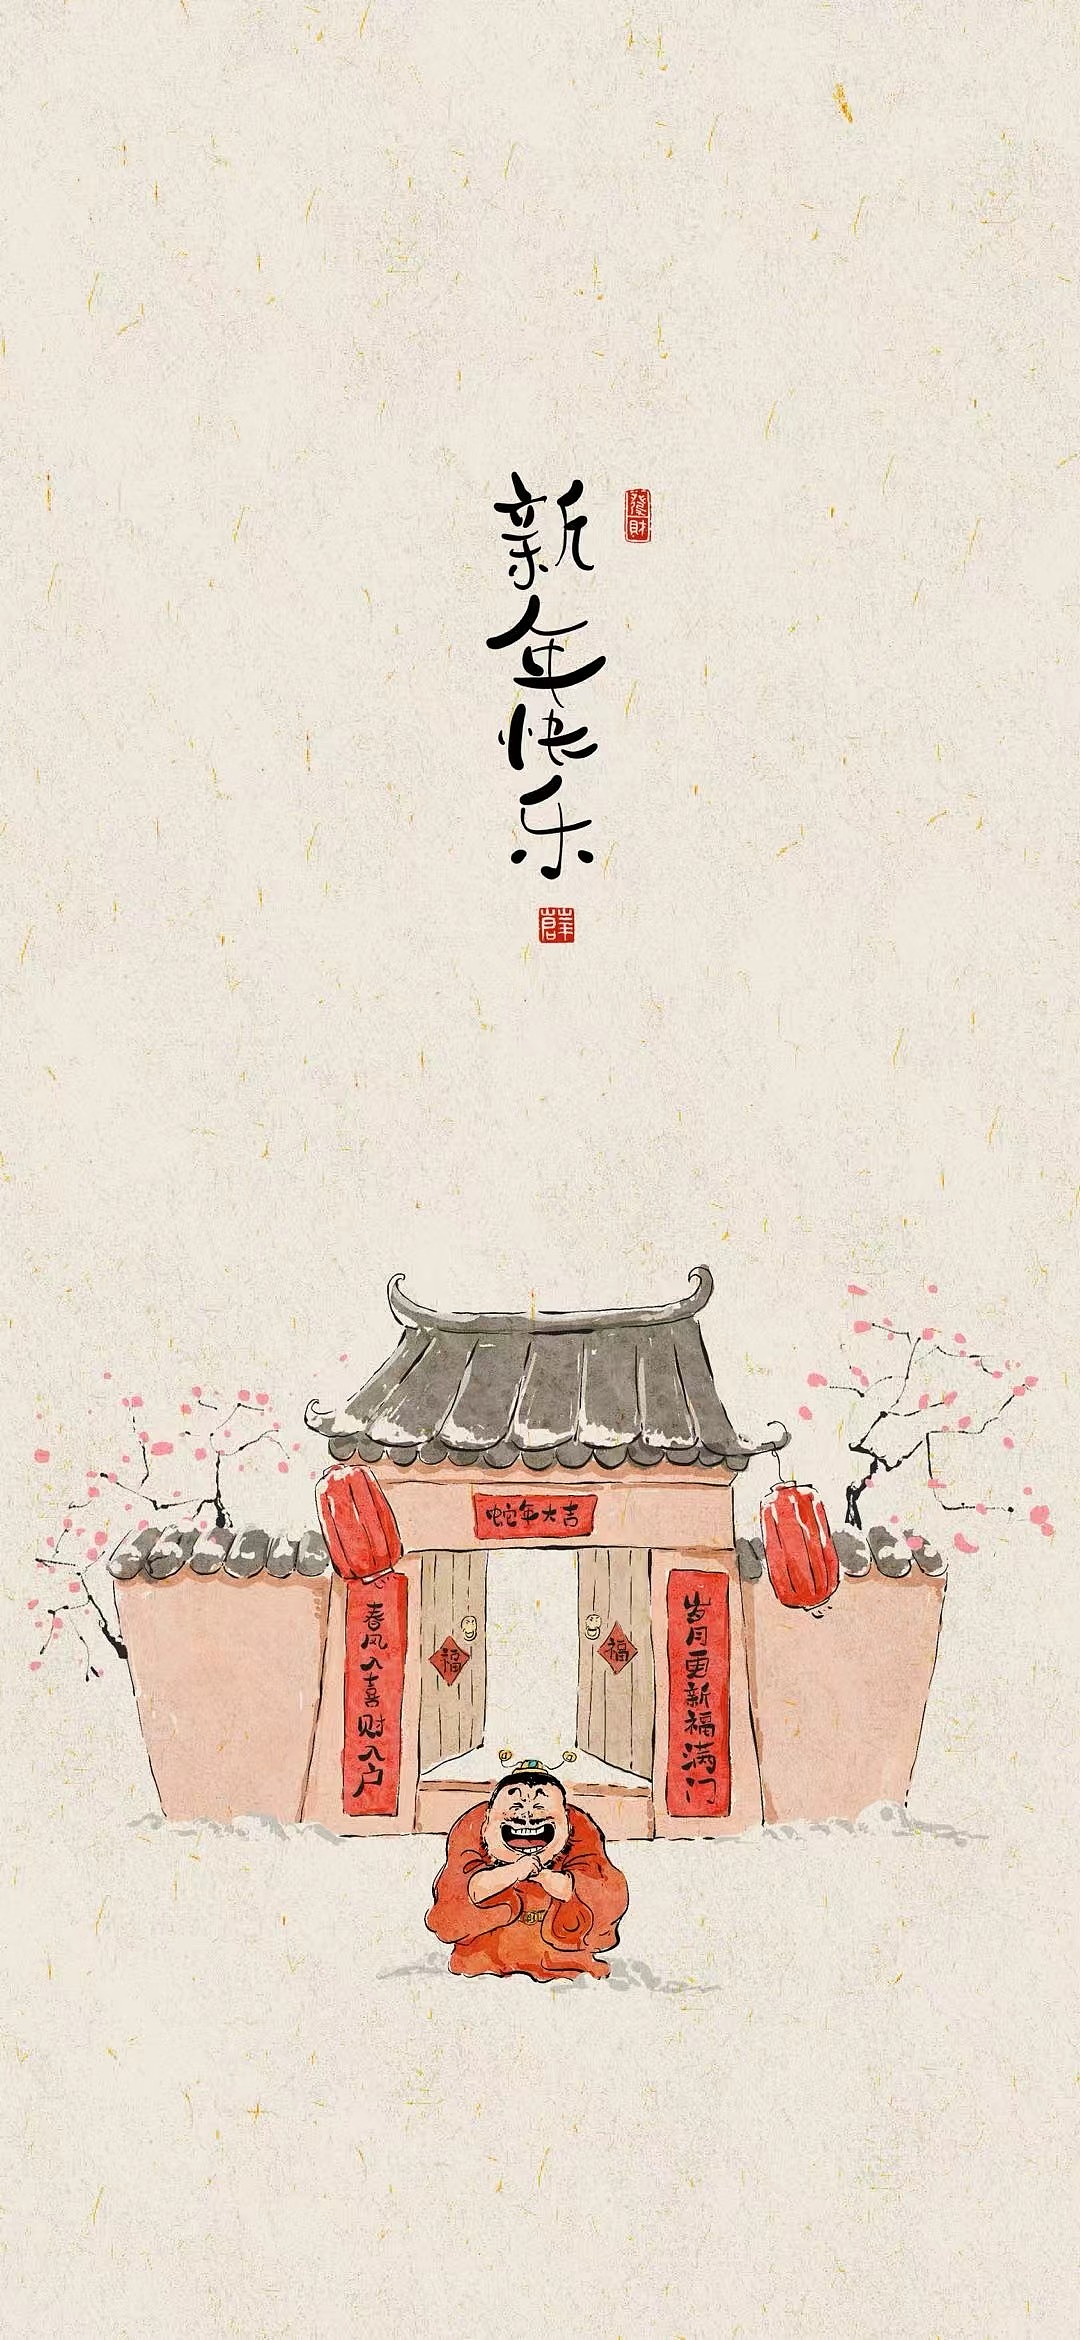 新年快乐
發財
群
蛇年大吉
岁月更新福满门
春风入喜财入户
福
福